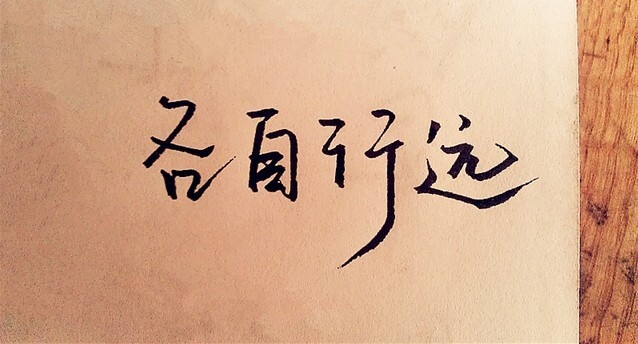 各自行远